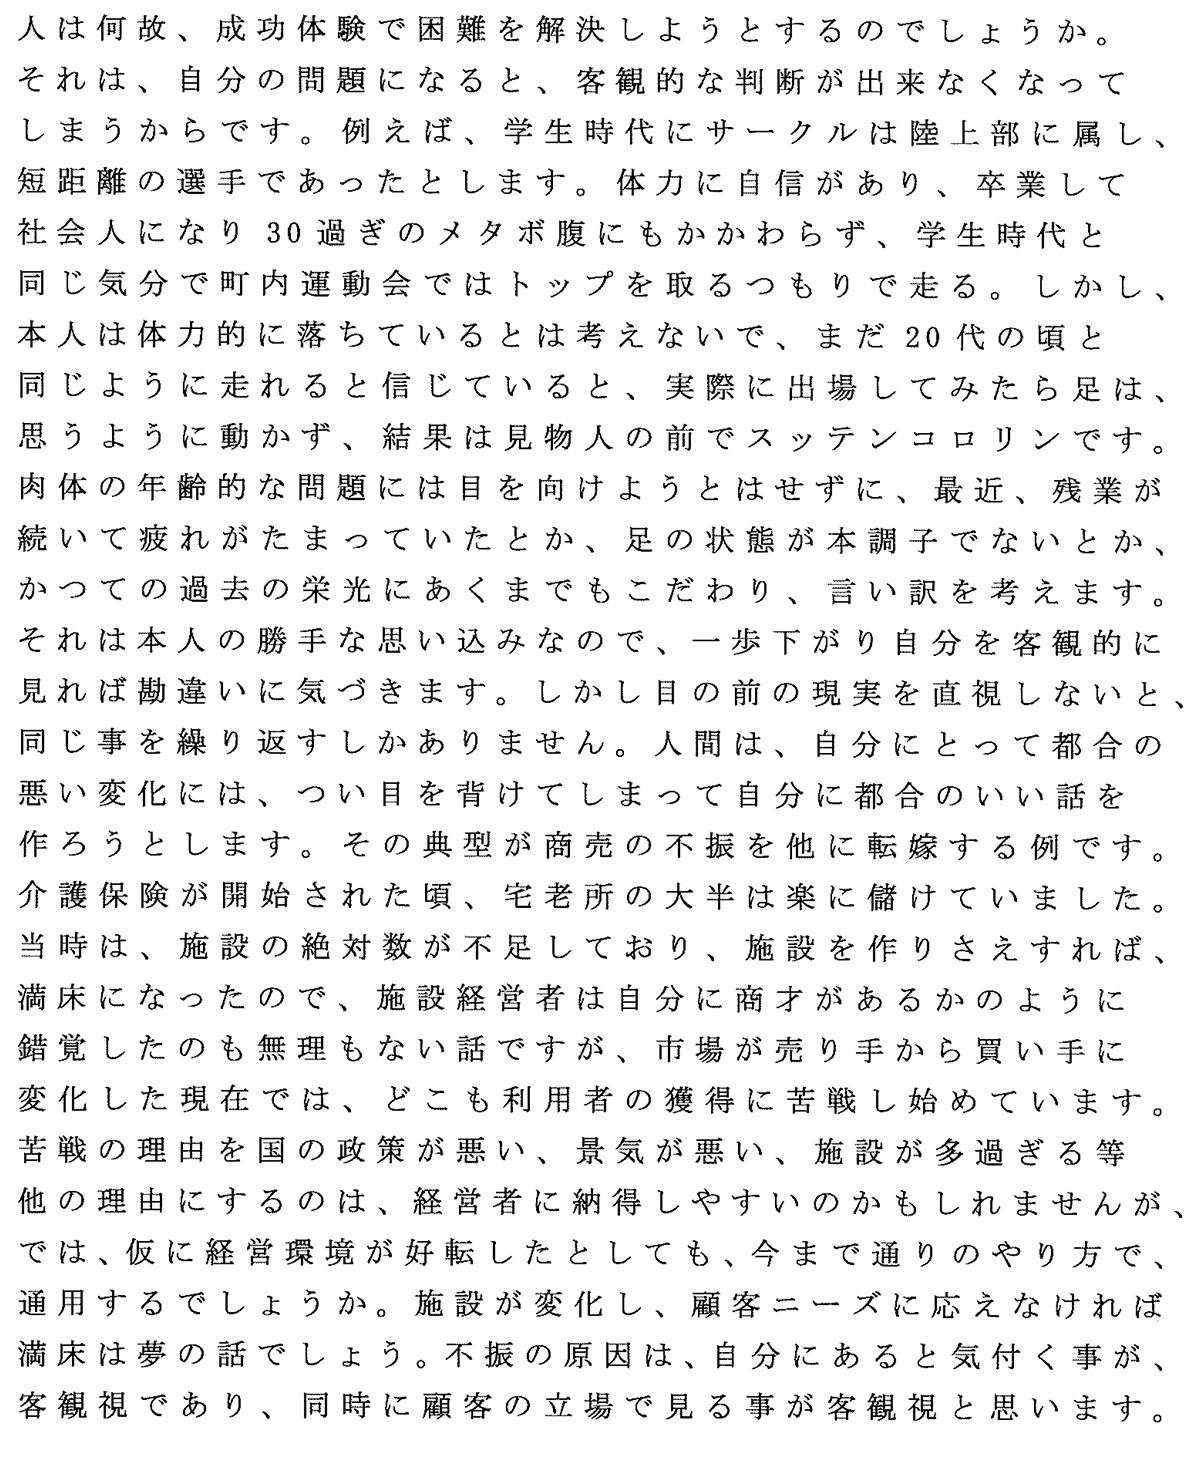 人は何故、成功体験で困難を解決しようとするのでしょうか。
それは、自分の問題になると、客観的な判断が出来なくなって
しまうからです。例えば、学生時代にサークルは陸上部に属し、
短距離の選手であったとします。体力に自信があり、卒業して
社会人になり30過ぎのメタボ腹にもかかわらず、学生時代と
同じ気分で町内運動会ではトップを取るつもりで走る。しかし、
本人は体力的に落ちているとは考えないで、まだ20代の頃と
同じように走れると信じていると、実際に出場してみたら足は、
思うように動かず、結果は見物人の前でスッテンコロリンです。
肉体の年齢的な問題には目を向けようとはせずに、最近、残業が
続いて疲れがたまっていたとか、足の状態が本調子でないとか、
かつての過去の栄光にあくまでもこだわり、言い訳を考えます。
それは本人の勝手な思い込みなので、一歩下がり自分を客観的に
見れば勘違いに気づきます。しかし目の前の現実を直視しないと、
同じ事を繰り返すしかありません。人間は、自分にとって都合の
悪い変化には、つい目を背けてしまって自分に都合のいい話を
作ろうとします。その典型が商売の不振を他に転嫁する例です。
介護保険が開始された頃、宅老所の大半は楽に儲けていました。
当時は、施設の絶対数が不足しており、施設を作りさえすれば、
満床になったので、施設経営者は自分に商才があるかのように
錯覚したのも無理もない話ですが、市場が売り手から買い手に
変化した現在では、どこも利用者の獲得に苦戦し始めています。
苦戦の理由を国の政策が悪い、景気が悪い、施設が多過ぎる等
他の理由にするのは、経営者に納得しやすいのかもしれませんが、
では、仮に経営環境が好転したとしても、今まで通りのやり方で、
通用するでしょうか。施設が変化し、顧客ニーズに応えなければ
満床は夢の話でしょう。不振の原因は、自分にあると気付く事が、
客観視であり、同時に顧客の立場で見る事が客観視と思います。